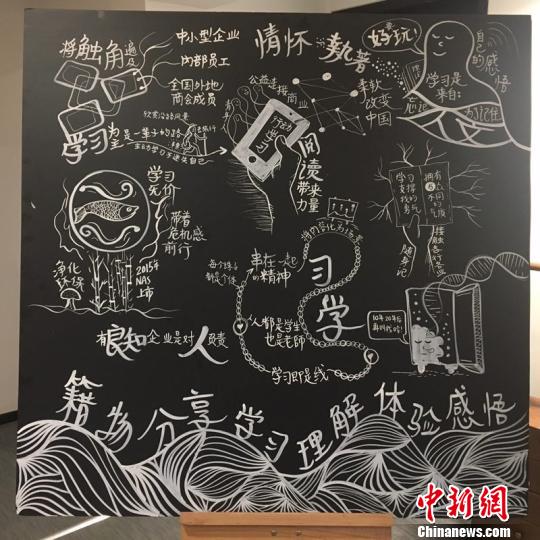 将触角遍及
中小型企业
内部员工
全国外地
商会成员
情怀
执着
好玩!
自己的感悟
学习是
来自:
为了记住
公益连接商业
柔软
改变
中国
行动力
学习
阅读
带来
力量
欣赏沿路风景
学习
是一辈子的路
学习
无价
带着
危机感
前行
净化
环保
2015年
NAS
上市
每个珠子
都是个体
串在一起
的精神
人人都是学生
也是老师
学习即是线
习学
拥有
不同
的气质
接触各行
随身记
10年20年后
再找我哈!
有良知企业是对人负责
籍为分享学习理解体验感悟
中新网
Chinanews.com